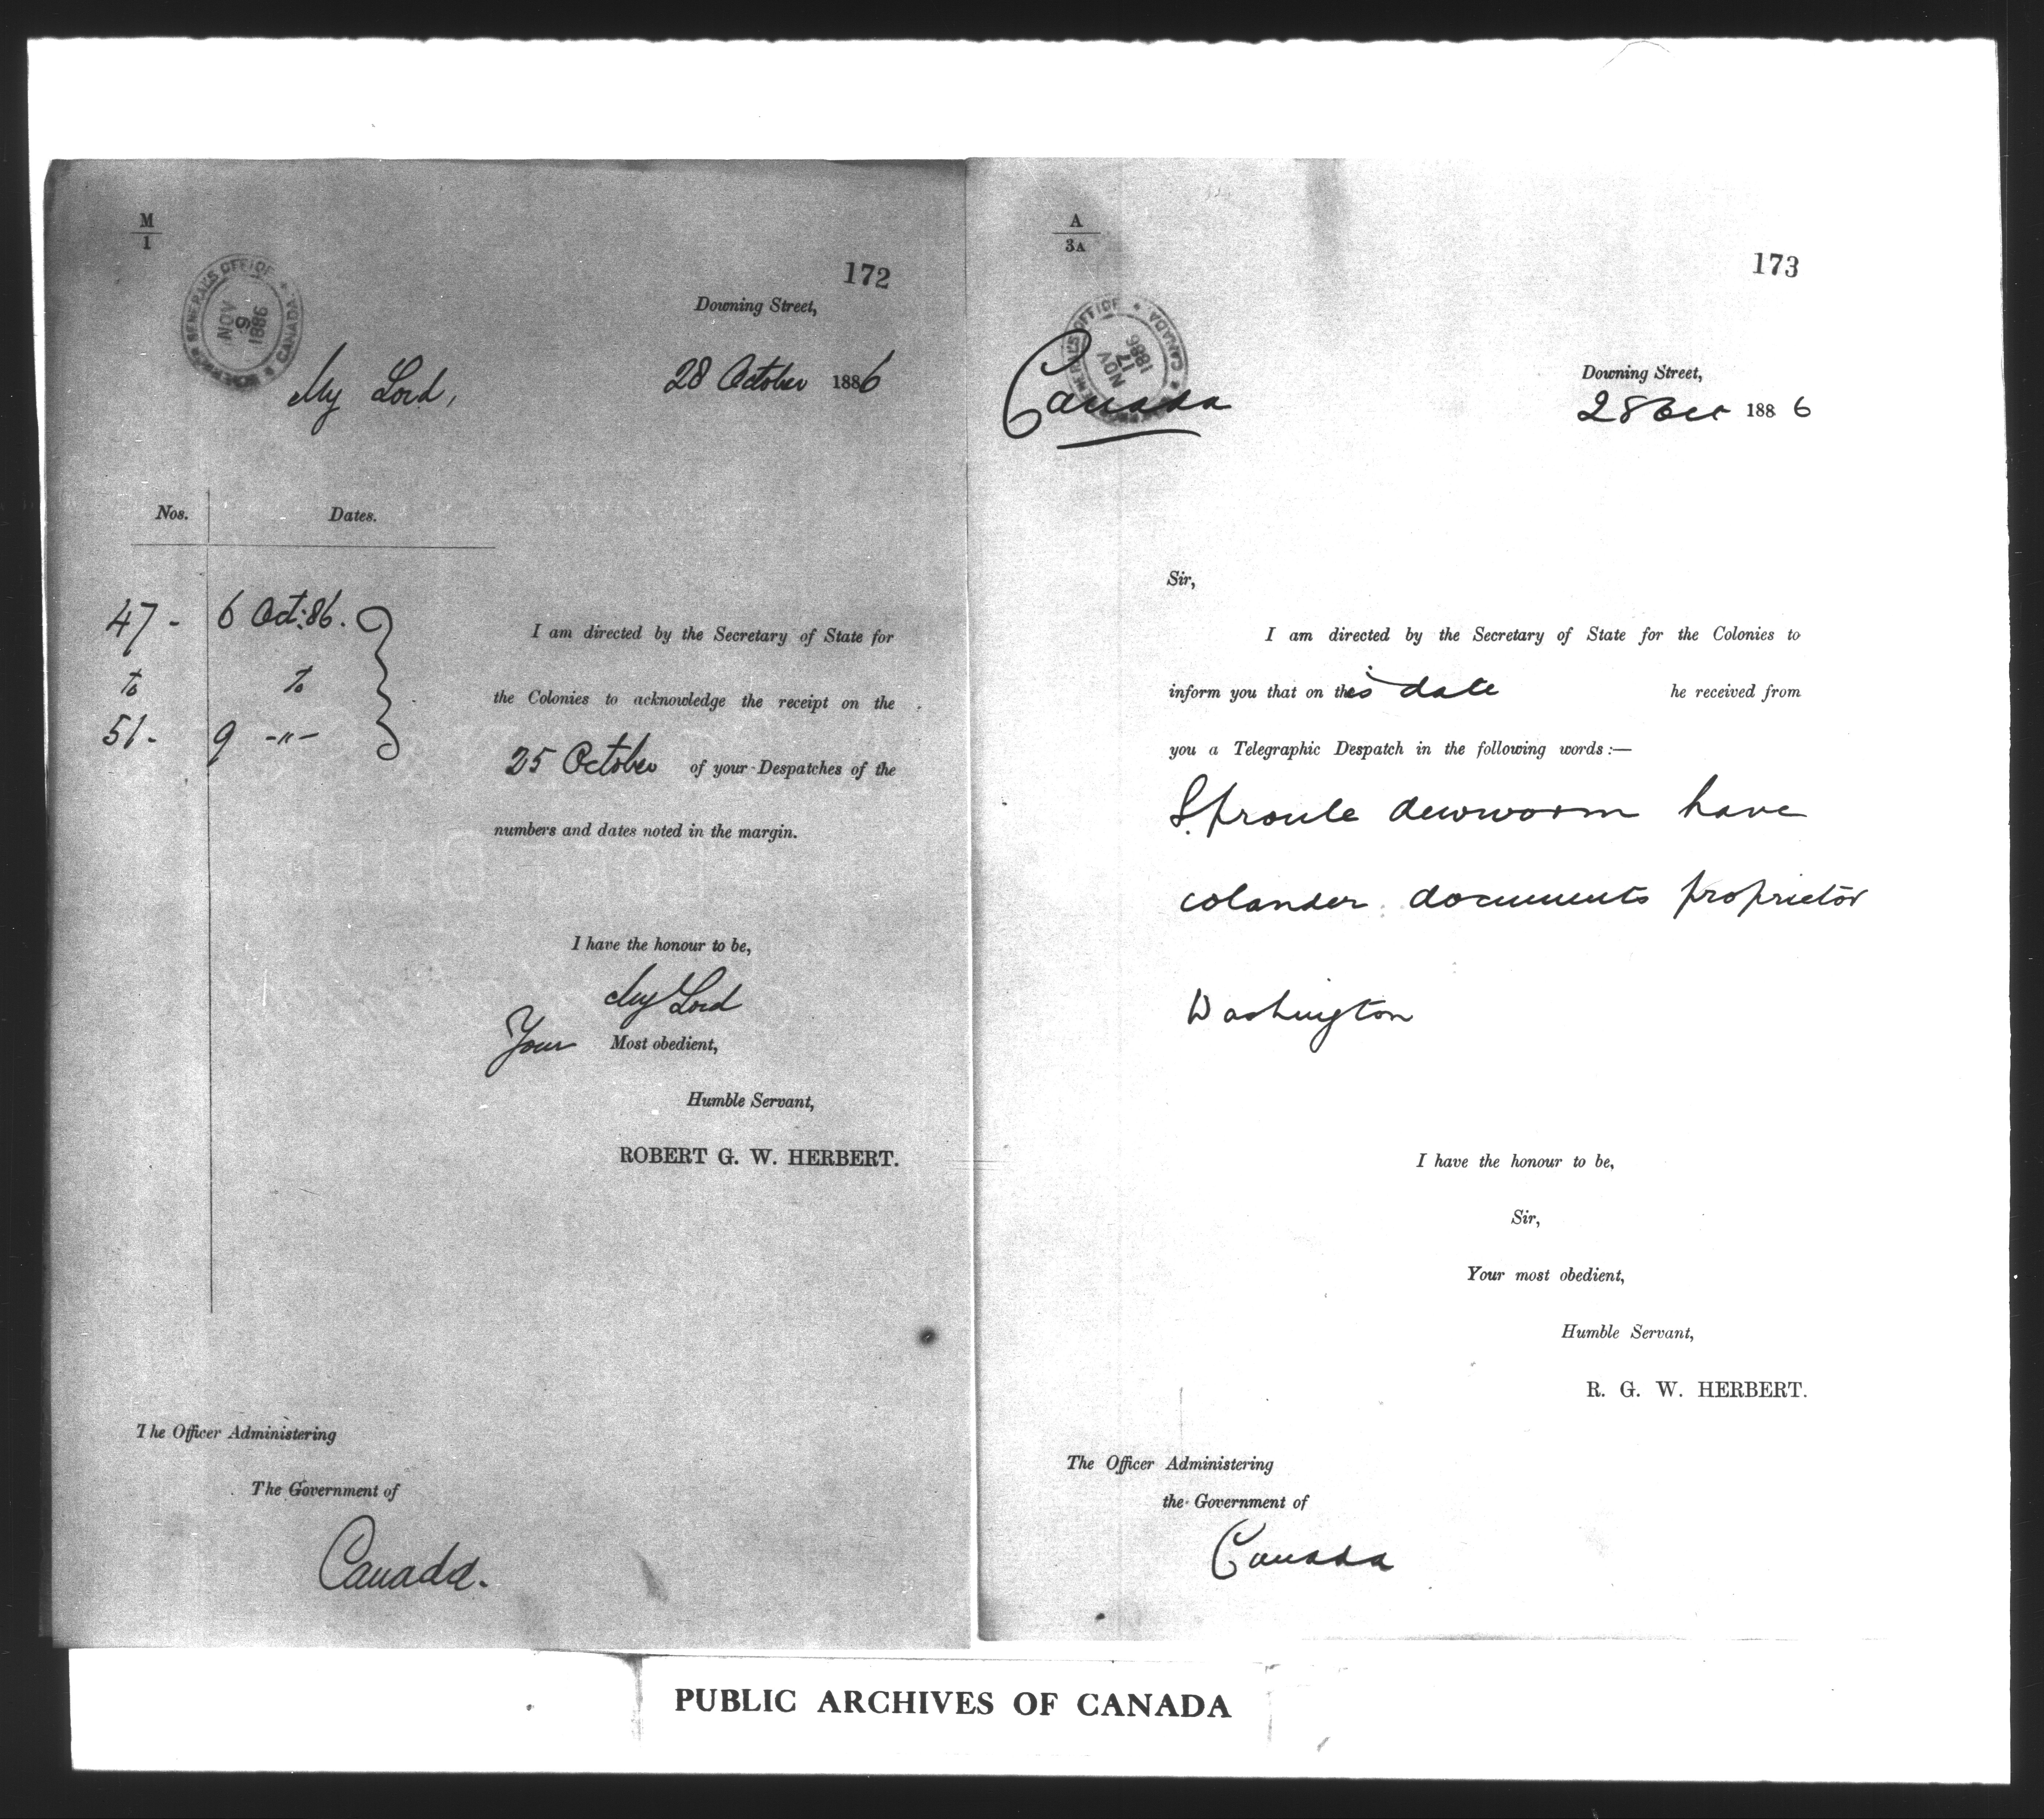 M
1
172
GOVERNOR GENERAL'S OFFICE
NOV
9
1886
* CANADA *
Downing Street,
My Lord,
28 October 1886
Nos. Dates.
47 - 6 Oct: 86.
to to
51 - 9 -"-
I am directed by the Secretary of State for
the Colonies to acknowledge the receipt on the
25 October of your Despatches of the
numbers and dates noted in the margin.
I have the honour to be,
My Lord
Your Most obedient,
Humble Servant,
ROBERT G. W. HERBERT.
The Officer Administering
The Government of
Canada.
A
3A
173
GOVERNOR GENERAL'S OFFICE
NOV
17
1886
* CANADA *
Canada
Downing Street,
28 Oct 1886
Sir,
I am directed by the Secretary of State for the Colonies to
inform you that on this date he received from
you a Telegraphic Despatch in the following words :—
Sproule dewworm have
colander documents proprietor
Washington
I have the honour to be,
Sir,
Your most obedient,
Humble Servant,
R. G. W. HERBERT.
The Officer Administering
the Government of
Canada
PUBLIC ARCHIVES OF CANADA